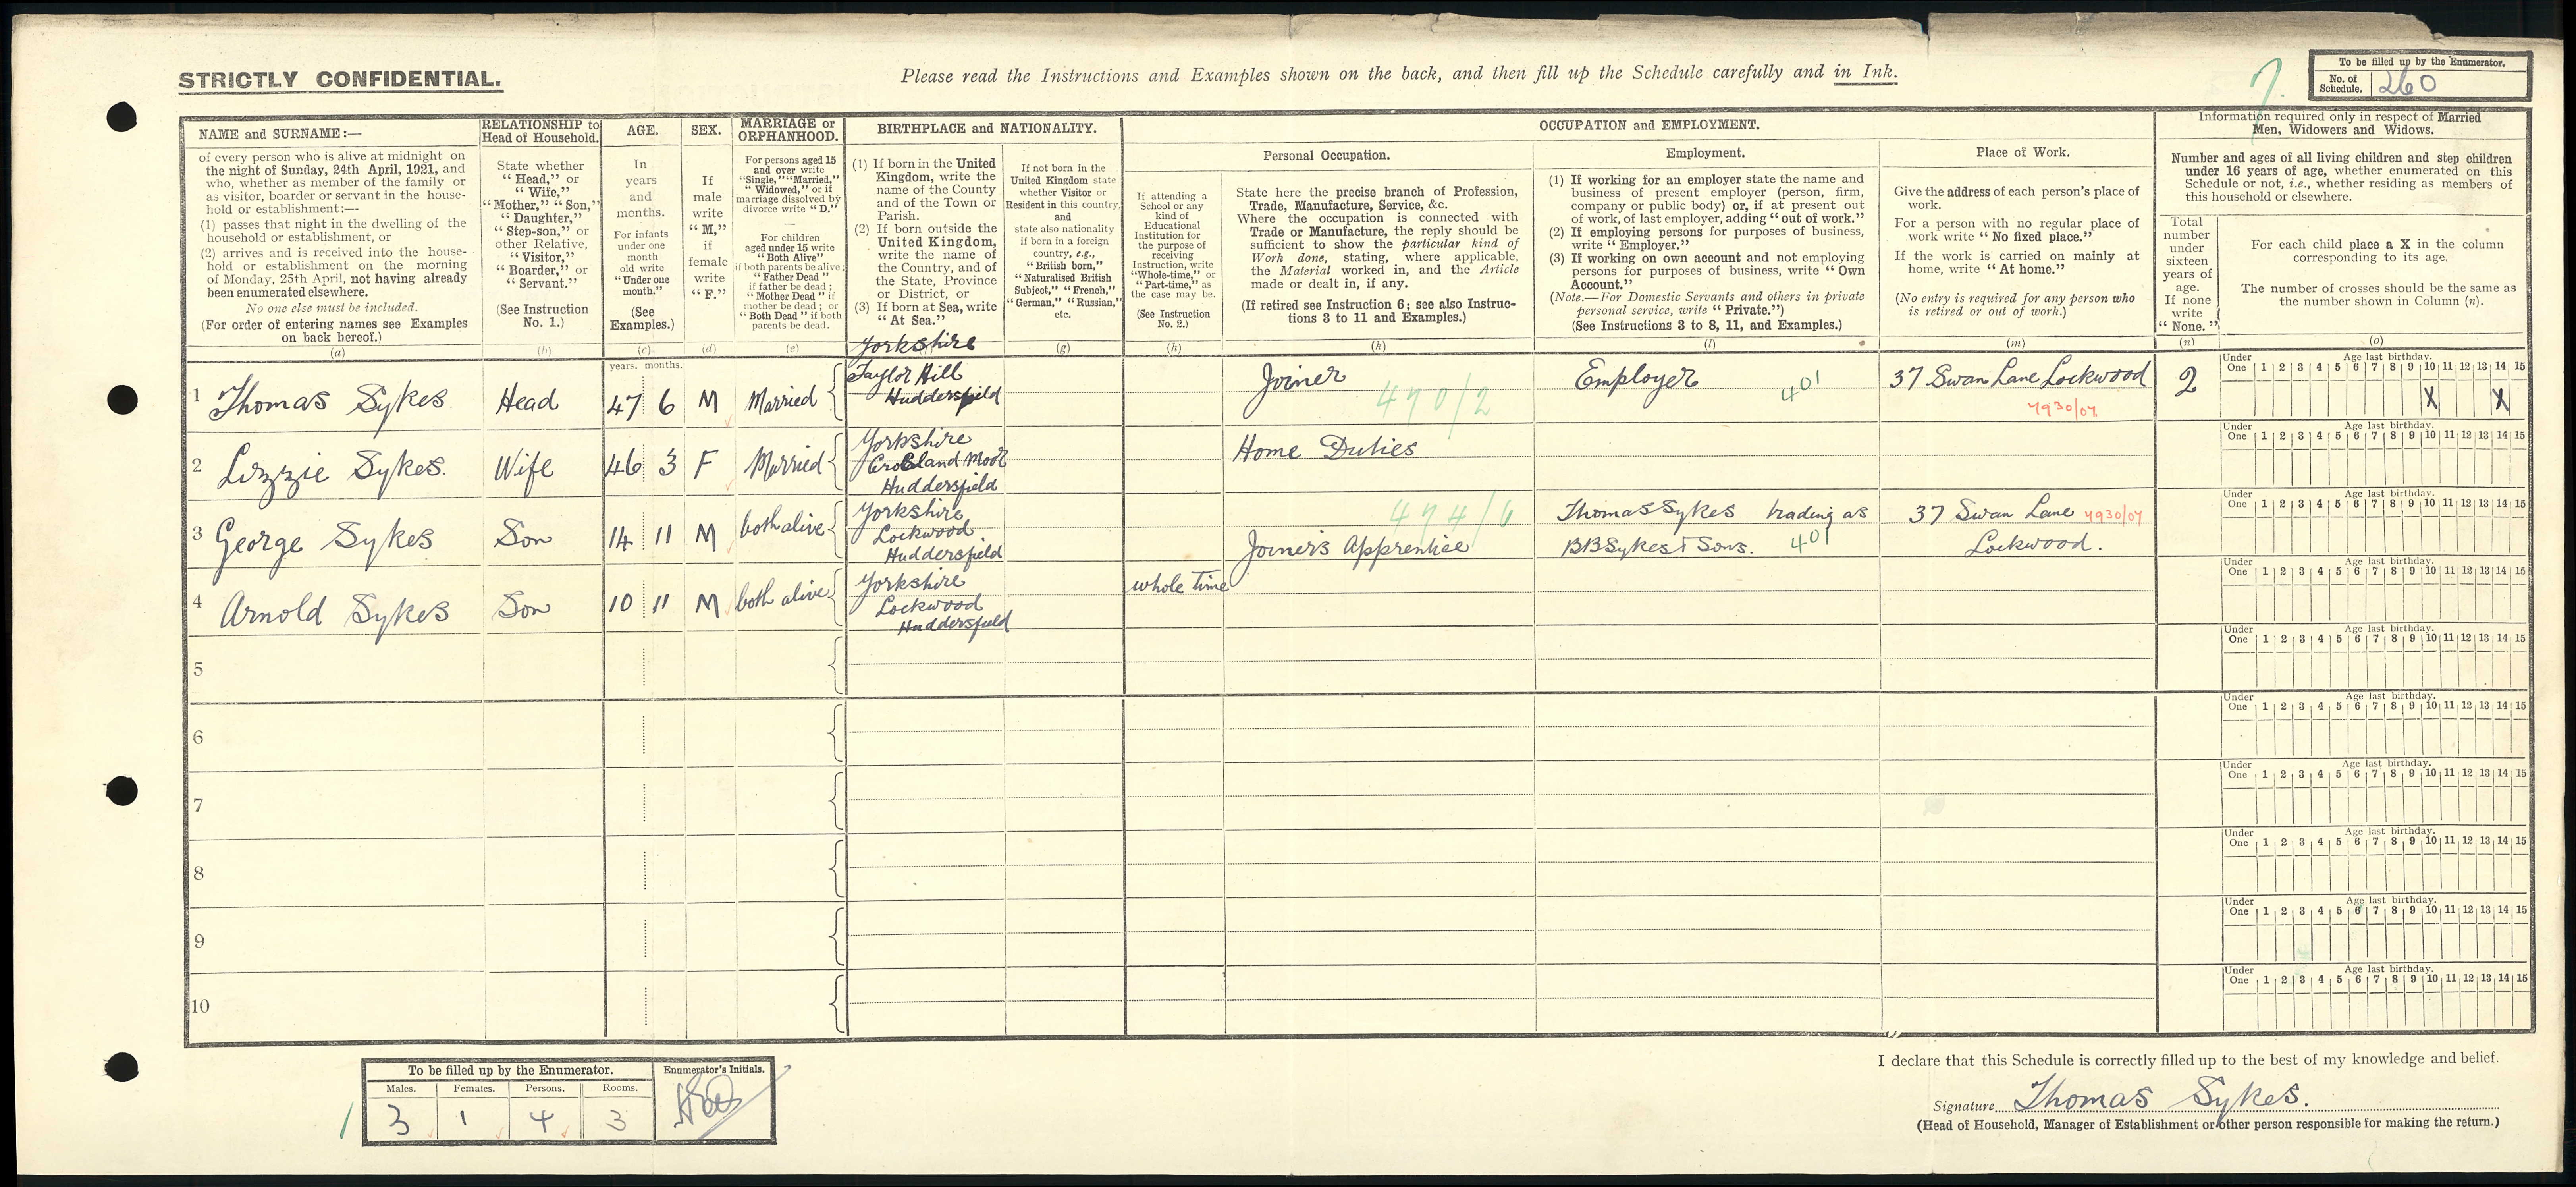 STRICTLY CONFIDENTIAL.
Please read the Instructions and Examples shown on the back, and then fill up the Schedule carefully and in Ink.
To be filled up by the Enumerator.
No. of Schedule. 260
NAME and SURNAME:—
of every person who is alive at midnight on
the night of Sunday, 24th April, 1921, and
who, whether as member of the family or
as visitor, boarder or servant in the house-
hold or establishment:—
(1) passes that night in the dwelling of the
household or establishment, or
(2) arrives and is received into the house-
hold or establishment on the morning
of Monday, 25th April, not having already
been enumerated elsewhere.
No one else must be included.
(For order of entering names see Examples
on back hereof.)
(a)
RELATIONSHIP to
Head of Household.
State whether
"Head," or
"Wife,"
"Mother," "Son,"
"Daughter,"
"Step-son," or
other Relative,
"Visitor,"
"Boarder," or
"Servant."
(See Instruction
No. 1.)
(b)
AGE.
In
years
and
months.
For infants
under one
month
old write
"Under one
month."
(See
Examples.)
(c)
SEX.
If
male
write
"M,"
if
female
write
"F."
(d)
MARRIAGE or
ORPHANHOOD.
For persons aged 15
and over write
"Single," "Married,"
"Widowed," or if
marriage dissolved by
divorce write "D."
For children
aged under 15 write
"Both Alive"
if both parents be alive;
"Father Dead"
if father be dead;
"Mother Dead" if
mother be dead; or
"Both Dead" if both
parents be dead.
(e)
BIRTHPLACE and NATIONALITY.
(1) If born in the United
Kingdom, write the
name of the County
and of the Town or
Parish.
(2) If born outside the
United Kingdom,
write the name of
the Country, and of
the State, Province
or District, or
(3) If born at Sea, write
"At Sea."
If not born in the
United Kingdom state
whether Visitor or
Resident in this country,
and
state also nationality
if born in a foreign
country, e.g.,
"British born,"
"Naturalised British
Subject," "French,"
"German," "Russian,"
etc.
(g)
OCCUPATION and EMPLOYMENT.
If attending a
School or any
kind of
Educational
Institution for
the purpose of
receiving
Instruction, write
"Whole-time," or
"Part-time," as
the case may be.
(See Instruction
No. 2.)
(h)
Personal Occupation.
State here the precise branch of Profession,
Trade, Manufacture, Service, &c.
Where the occupation is connected with
Trade or Manufacture, the reply should be
sufficient to show the particular kind of
Work done, stating, where applicable,
the Material worked in, and the Article
made or dealt in, if any.
(If retired see Instruction 6; see also Instruc-
tions 3 to 11 and Examples.)
(k)
Employment.
(1) If working for an employer state the name and
business of present employer (person, firm,
company or public body) or, if at present out
of work, of last employer, adding "out of work."
(2) If employing persons for purposes of business,
write "Employer."
(3) If working on own account and not employing
persons for purposes of business, write "Own
Account."
(Note.—For Domestic Servants and others in private
personal service, write "Private.")
(See Instructions 3 to 8, 11, and Examples.)
(l)
Place of Work.
Give the address of each person's place of
work.
For a person with no regular place of
work write "No fixed place."
If the work is carried on mainly at
home, write "At home."
(No entry is required for any person who
is retired or out of work.)
(m)
Information required only in respect of Married
Men, Widowers and Widows.
Number and ages of all living children and step children
under 16 years of age, whether enumerated on this
Schedule or not, i.e., whether residing as members of
this household or elsewhere.
Total
number
under
sixteen
years of
age.
If none
write
"None."
(n)
For each child place a X in the column
corresponding to its age.
The number of crosses should be the same as
the number shown in Column (n).
(o)
years. months.
Yorkshire
Taylor Hill
Huddersfield
1 Thomas Sykes Head 47 6 M Married Joiner 470/2 Employer 401 37 Swan Lane Lockwood 2
Under One 1 2 3 4 5 6 7 8 9 10 11 12 13 14 15
Age last birthday.
X X
7930/07
Yorkshire
Crosland Moor
Huddersfield
2 Lizzie Sykes. Wife 46 3 F Married Home Duties
Under One 1 2 3 4 5 6 7 8 9 10 11 12 13 14 15
Age last birthday.
Yorkshire
Lockwood
Huddersfield
3 George Sykes Son 14 11 M both alive 474/6 Joiner's Apprentice
Thomas Sykes trading as
BB Sykes & Sons. 401
37 Swan Lane 7930/07
Lockwood.
Under One 1 2 3 4 5 6 7 8 9 10 11 12 13 14 15
Age last birthday.
Yorkshire
Lockwood
Huddersfield
4 Arnold Sykes Son 10 11 M both alive whole time
Under One 1 2 3 4 5 6 7 8 9 10 11 12 13 14 15
Age last birthday.
5
Under One 1 2 3 4 5 6 7 8 9 10 11 12 13 14 15
Age last birthday.
6
Under One 1 2 3 4 5 6 7 8 9 10 11 12 13 14 15
Age last birthday.
7
Under One 1 2 3 4 5 6 7 8 9 10 11 12 13 14 15
Age last birthday.
8
Under One 1 2 3 4 5 6 7 8 9 10 11 12 13 14 15
Age last birthday.
9
Under One 1 2 3 4 5 6 7 8 9 10 11 12 13 14 15
Age last birthday.
10
Under One 1 2 3 4 5 6 7 8 9 10 11 12 13 14 15
Age last birthday.
To be filled up by the Enumerator.
Enumerator's Initials.
Males. Females. Persons. Rooms.
3 1 4 3
I declare that this Schedule is correctly filled up to the best of my knowledge and belief.
Signature Thomas Sykes.
(Head of Household, Manager of Establishment or other person responsible for making the return.)